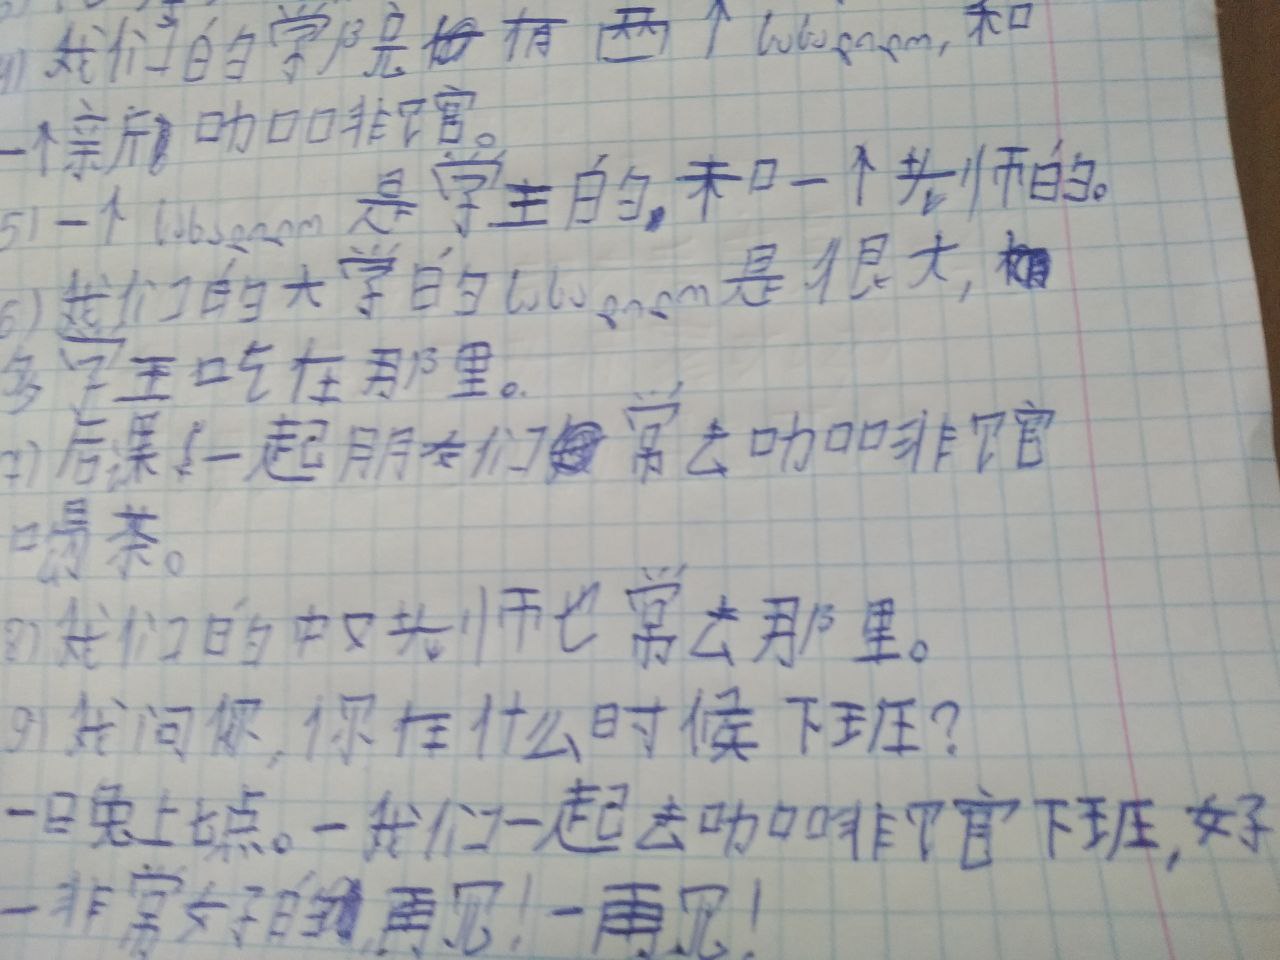 4) 我们的学院有四个 სასადილო, 和
一个新咖啡官。
5) 一个 სასადილო 是学生的, 和一个老师的。
6) 我们的大学的 სასადილო 是很大,
多学生吃在那里。
7) 后课 一起朋友们常去咖啡官
喝茶。
8) 我们的中文老师也常去那里。
9) 我问你, 你在什么时候下班?
一 晚上七点。 一 我们一起去咖啡官下班, 好
一 非常好的 再见! 一 再见!